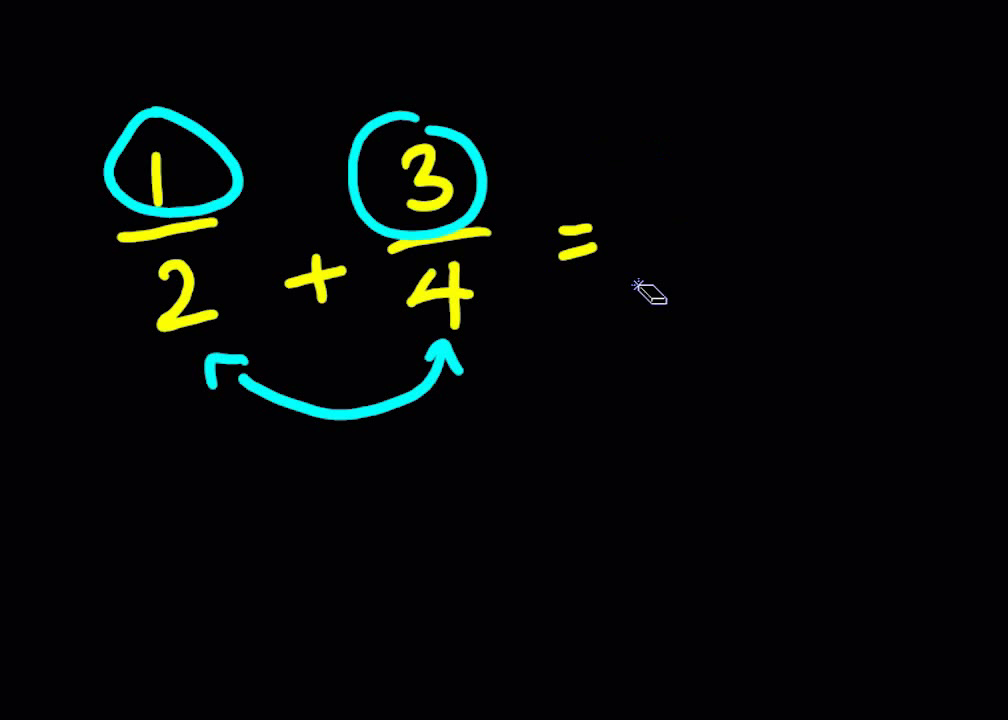 1/2 + 3/4 =